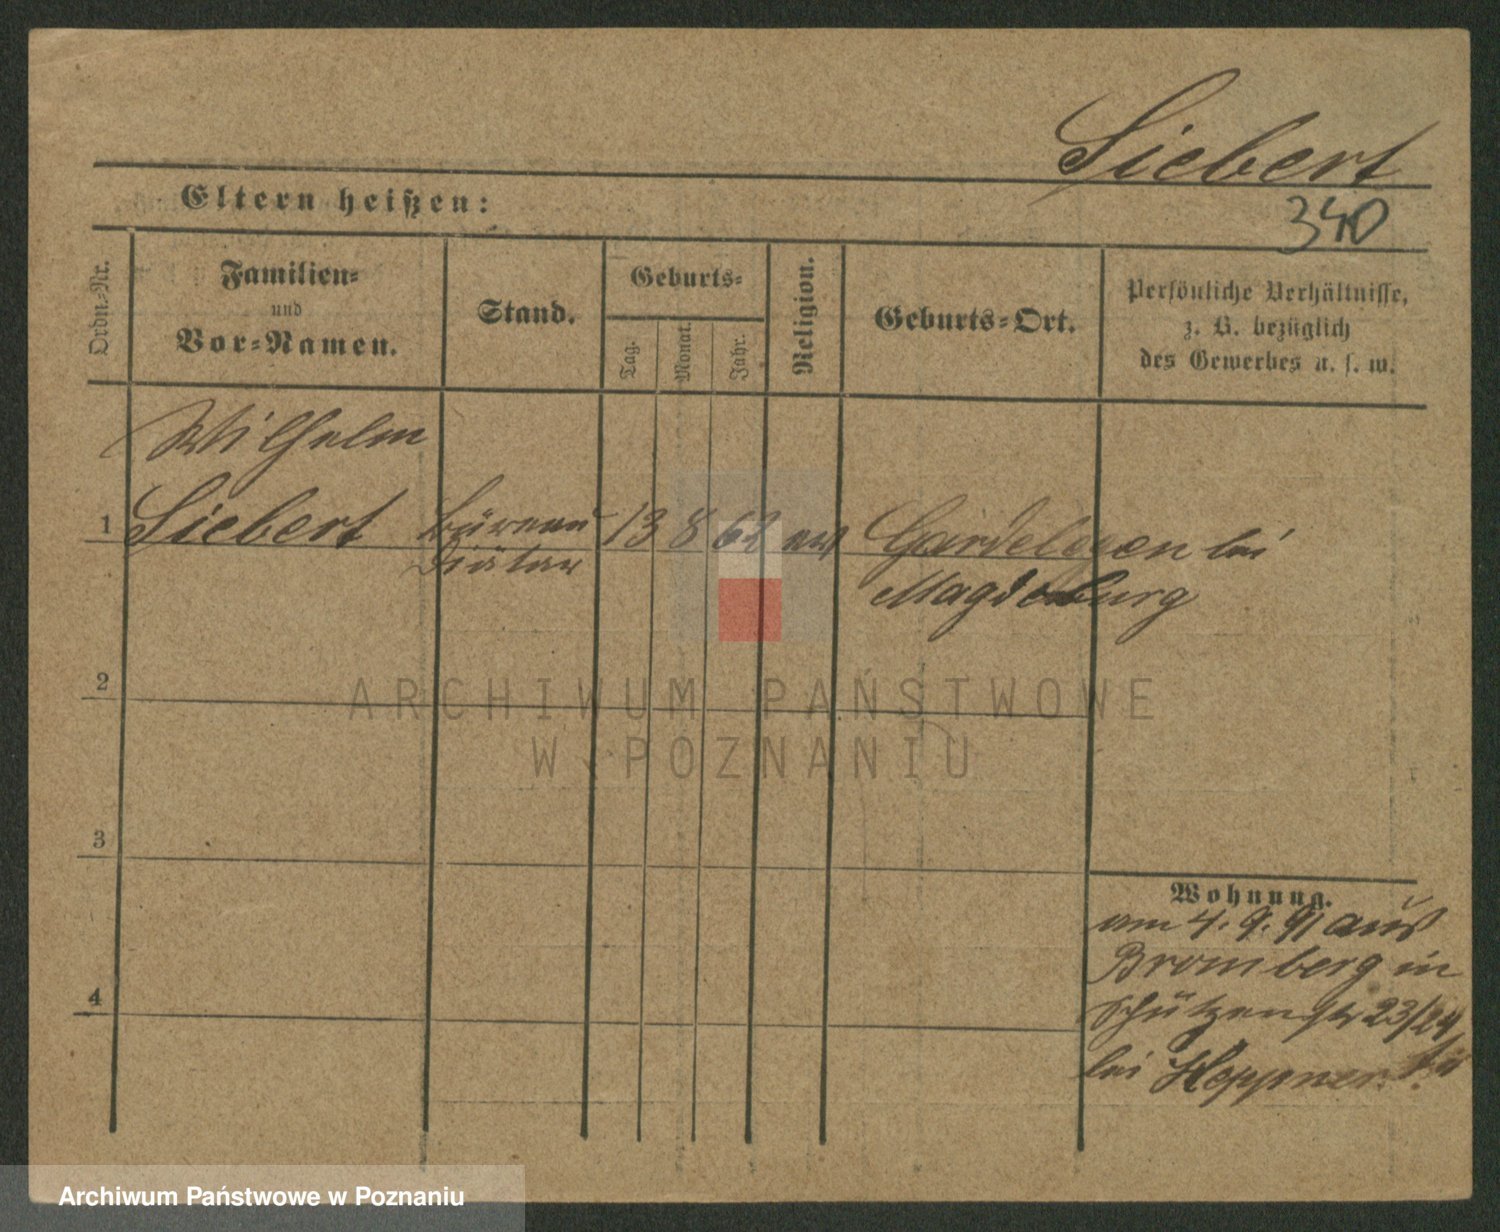 Siebert
340
Eltern heißen:
Ordn.-Nr.
Familien-
und
Vor-Namen.
Stand.
Geburts-
Tag.
Monat.
Jahr.
Religion.
Geburts-Ort.
Persönliche Verhältnisse,
z. B. bezüglich
des Gewerbes u. s. w.
Wilhelm
1 Siebert Büreau 13 8 62 ev Gardelegen bei
Diätar Magdeburg
2
ARCHIWUM PAŃSTWOWE
W POZNANIU
3
Wohnung.
am 4. 9. 91 aus
Bromberg in
4
Schützenstr 23/24
bei Heppner
Archiwum Państwowe w Poznaniu